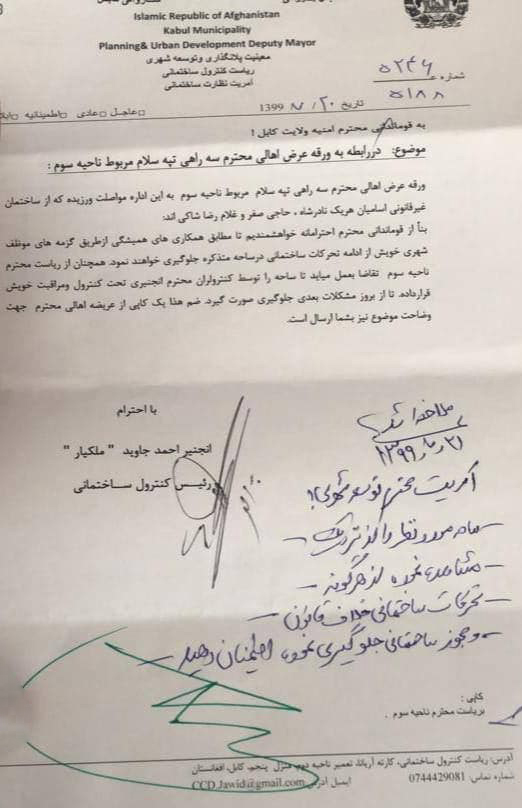 Islamic Republic of Afghanistan
Kabul Municipality
Planning& Urban Development Deputy Mayor
معینیت پلانگذاری وتوسعه شهری
ریاست کنترول ساختمانی
آمریت نظارت ساختمانی
شماره ۵۲۴۶
۵۱۸۸
تاریخ ۲۰ / ۷ / 1399 □عاجل □عادی □اطمینانیه
به قوماندانی محترم امنیه ولایت کابل !
موضوع: دررابطه به ورقه عرض اهالی محترم سه راهی تپه سلام مربوط ناحیه سوم :
ورقه عرض اهالی محترم سه راهی تپه سلام مربوط ناحیه سوم به این اداره مواصلت ورزیده که از ساختمان
غیرقانونی اسامیان هریک نادرشاه ، حاجی صفر و غلام رضا شاکی اند:
بنأ از قوماندانی محترم احترامانه خواهشمندیم تا مطابق همکاری های همیشگی ازطریق گزمه های موظف
شهری خویش از ادامه تحرکات ساختمانی درساحه متذکره جلوگیری خواهند نمود. همچنان از ریاست محترم
ناحیه سوم تقاضا بعمل میاید تا ساحه را توسط کنترولران محترم انجنیری تحت کنترول ومراقبت خویش
قرارداده. تا از بروز مشکلات بعدی جلوگیری صورت گیرد. ضم هذا یک کاپی از عریضه اهالی محترم جهت
وضاحت موضوع نیز بشما ارسال است.
با احترام
انجنیر احمد جاوید " ملکیار "
رئیس کنترول ساختمانی
ملاحظه شد
۲۱ / ۷ / ۱۳۹۹
آمریت محترم توسعه شهری!
ساحه مورد نظر را از نزدیک
مشاهده نموده از هرگونه
تحرکات ساختمانی خلاف قانون
و مجوز ساختمانی جلوگیری نموده اطمینان دهید
کاپی :
بریاست محترم ناحیه سوم .
آدرس: ریاست کنترول ساختمانی، کارته آریانا، تعمیر ناحیه دوم، منزل پنجم، کابل، افغانستان
شماره تماس: 0744429081 ایمیل آدرس: CCD.Jawid@gmail.com